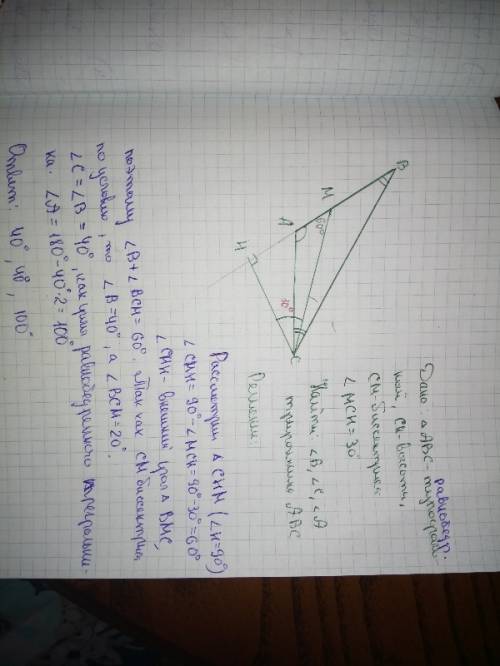 Дано: △ABC - равнобедр.
тупоуголь-
ный, CH-высота,
CM-биссектриса
∠MCH=30°
Найти: ∠B, ∠C, ∠A
треугольника ABC
Решение:
B
M
60°
A
H
30°
C
Рассмотрим △CHM (∠H=90°)
∠CMH=90°-∠MCH=90°-30°=60°
∠CMH- внешний угол △BMC,
поэтому ∠B+∠BCM=60°. Так как CM биссектриса
по условию, то ∠B=40°, а ∠BCM=20°.
∠C=∠B=40°, как углы равнобедренного треугольни-
ка. ∠A=180°-40°·2=100°
Ответ: 40°, 40°, 100°